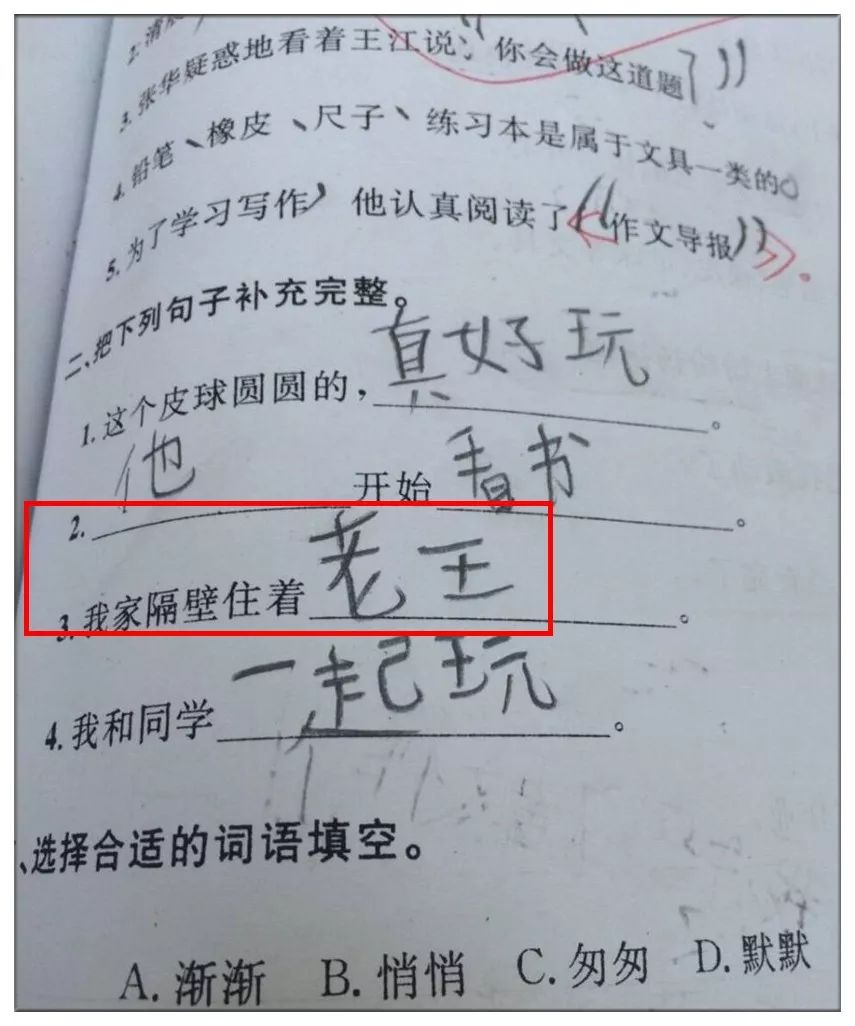 2. 清
3. 张华疑惑地看着王江说：“你会做这道题？”
4. 铅笔、橡皮、尺子、练习本是属于文具一类的。
5. 为了学习写作，他认真阅读了《作文导报》。
二、把下列句子补充完整。
1. 这个皮球圆圆的，真好玩。
2. 他开始看书。
3. 我家隔壁住着老王。
4. 我和同学一起玩。
、选择合适的词语填空。
A. 渐渐 B. 悄悄 C. 匆匆 D. 默默